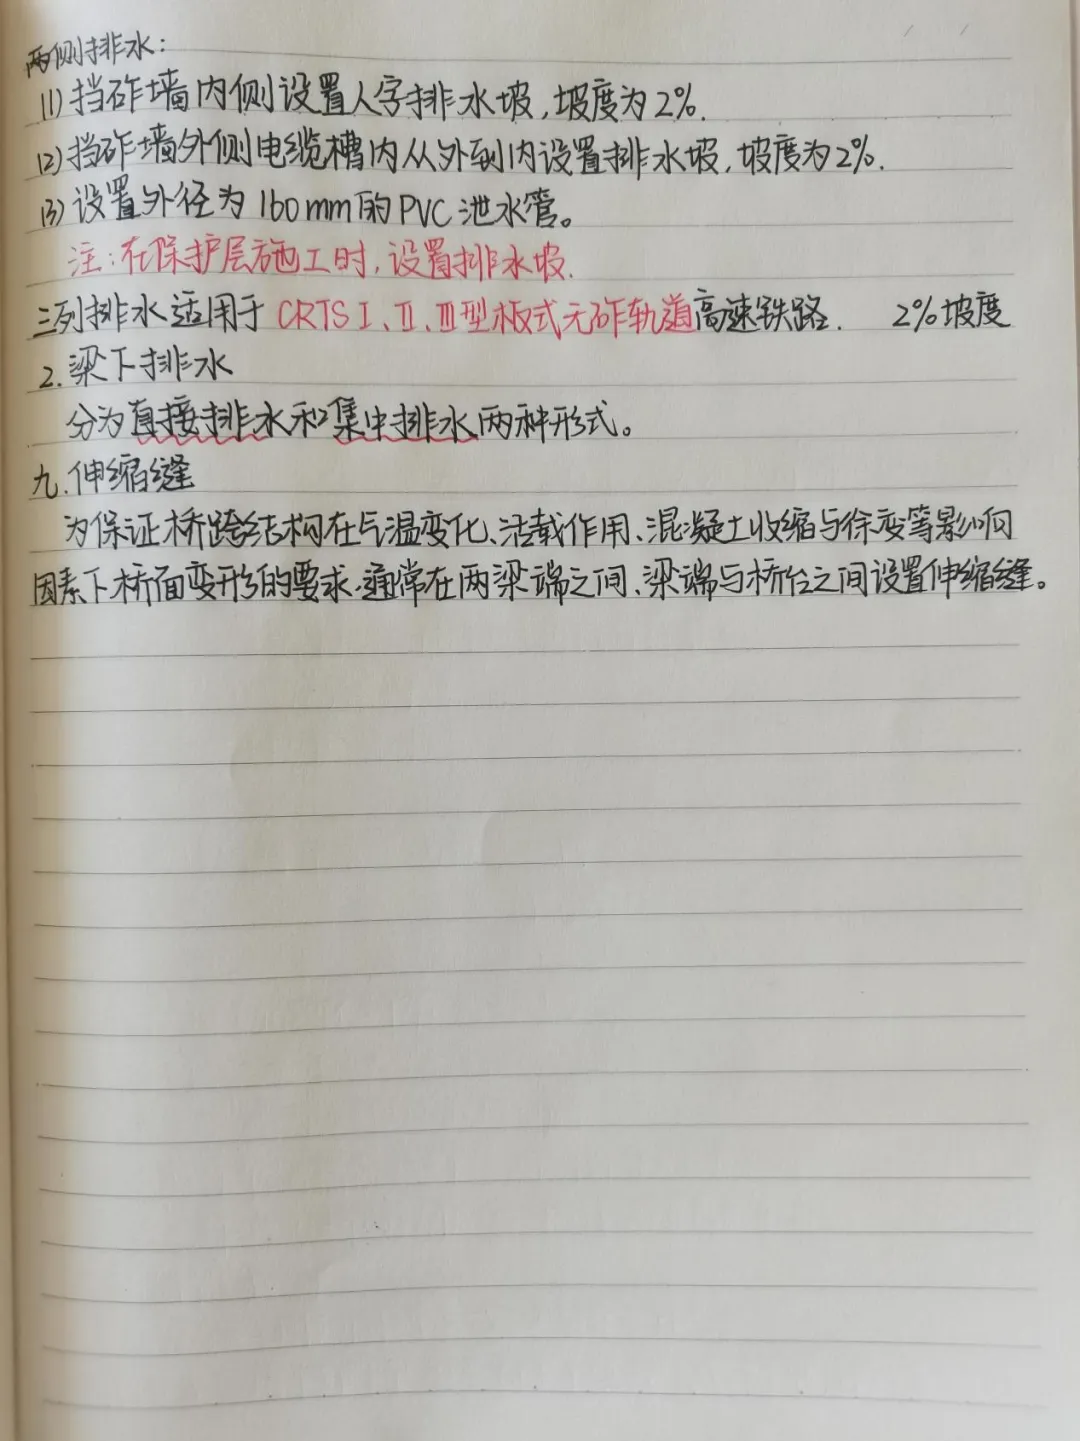 两侧排水：
(1)挡砟墙内侧设置人字排水坡,坡度为2%.
(2)挡砟墙外侧电缆槽内从外到内设置排水坡,坡度为2%.
(3)设置外径为160mm的PVC泄水管。
注:在保护层施工时,设置排水坡.
三列排水适用于CRTSⅠ、Ⅱ、Ⅲ型板式无砟轨道高速铁路. 2%坡度
2.梁下排水
分为直接排水和集中排水两种形式。
九.伸缩缝
为保证桥跨结构在气温变化、活载作用、混凝土收缩与徐变等影响
因素下桥面变形的要求,通常在两梁端之间、梁端与桥台之间设置伸缩缝。